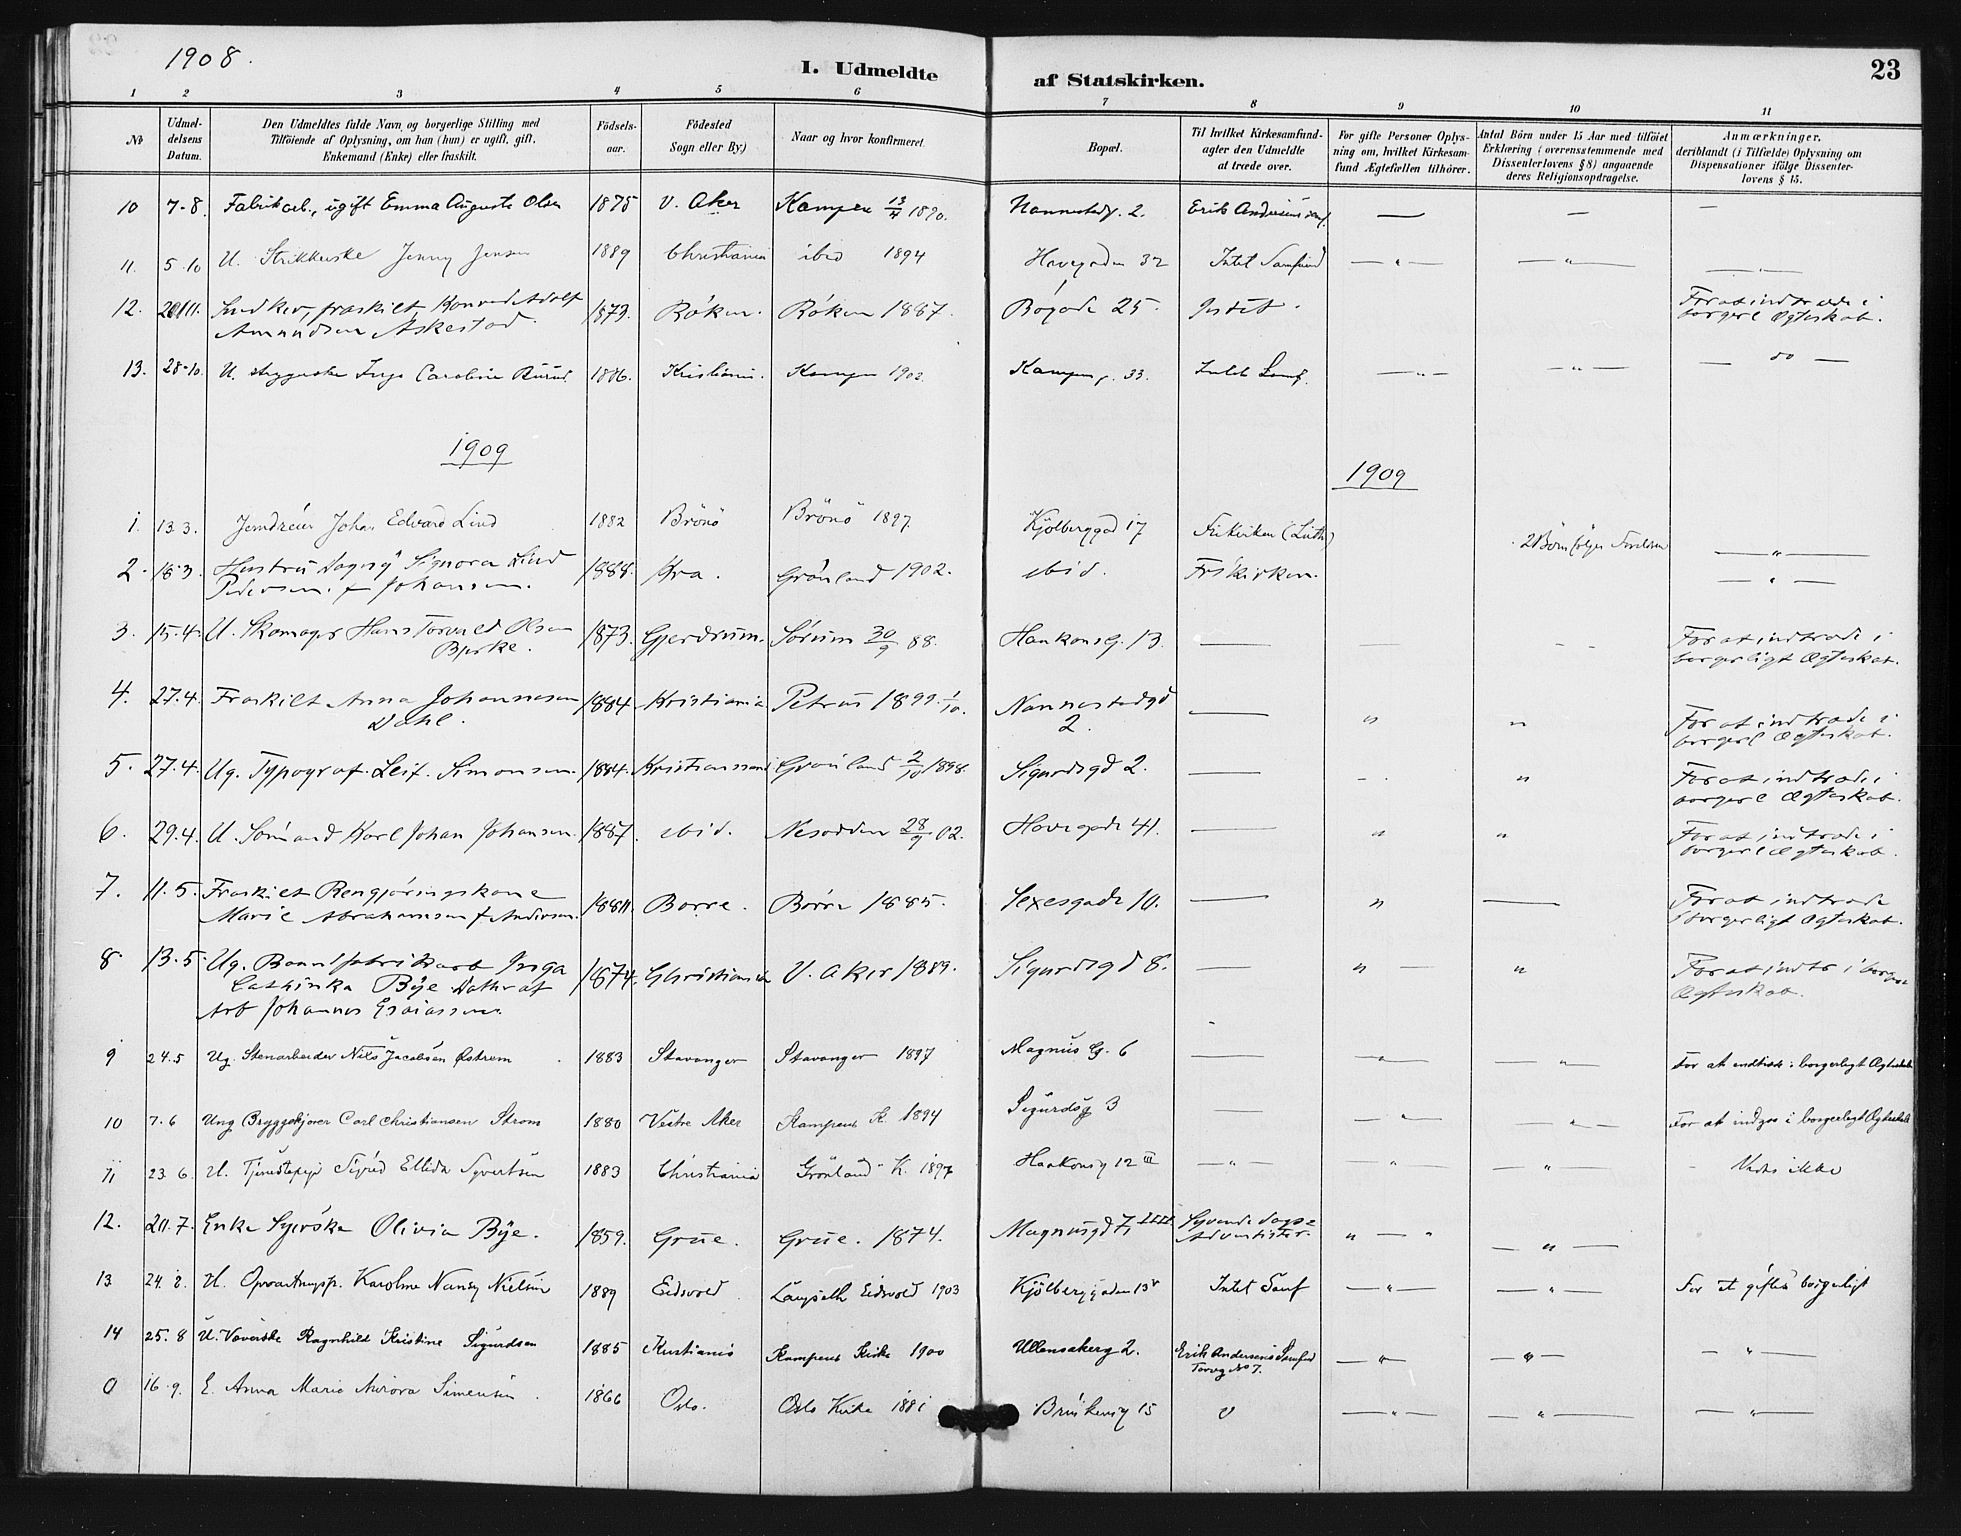 1908.
I. Udmeldte af Statskirken.
23
1 2 3 4 5 6 7 8 9 10 11
No
Udmel-
delsens
Datum.
Den Udmeldtes fulde Navn og borgerlige Stilling med
Tilföiende af Oplysning, om han (hun) er ugift, gift,
Enkemand (Enke) eller fraskilt.
Födsels-
aar.
Födested
Sogn eller By)
Naar og hvor konfirmeret.
Bopæl.
Til hvilket Kirkesamfund-
agter den Udmeldte
at træde over.
For gifte Personer Oplys-
ning om, hvilket Kirkesam-
fund Ægtefællen tilhörer.
Antal Börn under 15 Aar med tilföiet
Erklæring i overensstemmende med
Dissenterlovens § 8) angaaende
deres Religionsopdragelse.
Anmærkninger.
deriblandt (i Tilfælde) Oplysning om
Dispensationer ifölge Dissenter-
lovens § 15.
10 7-8. Fabrikarb., ugift Emma Auguste Olsen 1875 V. Aker Kampen 1890. Nannestadg. 2. — — —
11. 5-10 U. Strikkerske Jenny Jensen 1889 Christiania ibid 1894 Havegaden 32 Intet Samfund — " — — " —
12. fraskilt, Konrad Adolf
Amundsen Askestad. 1873. Röken. Röken 1887. Bögade 25. Intet. For at indtræde i
borgerl Ægteskab.
13. 28-10. U. Caroline 1886. Kristiania. Kampen 1902. Kampeng. 33. Intet Samf. — " — — " — — do —
1909
1909
1. 13.3. Jerndreier Johan Edvard Lind 1882 Brönö Brönö 1897 Kjölberggad 17 Frikirken (Luth) 2 Börn følger Forældrene — " —
2. 18.3. Hustru Dagny Signora Lind
Pedersen. f Johansen. 1888. Kra. Grönland 1902. ibid. Frikirken. — " —
3. 15.4. U. Skomager Hans Torvald Olsen
Bjerke. 1873. Gjerdrum. Sørum 30/9 88. Haakonsg. 13. — — For at indtræde i
borgerligt Ægteskab.
4. 27.4. Fraskilt Anna Johannesen
Dahl. 1884. Kristiania Petrus 1899. 1/10. Nannestadgd
2. — " " For at indtræde i
borgerl Ægteskab.
5. 27.4. Ug. Typograf. Leif. Simonsen. 1884. Kristianssand Grønland 2/10 1898. Sigurdsgd 2. — " For at indtræde i
borgerl Ægteskab.
6. 29.4. U. Sömand Karl Johan Johansen. 1887. ibid. Nesodden 28/9 02. Havegade 41. — " " For at indtræde i
borgerl Ægteskab.
7. 11.5. Fraskilt Rengjøringskone
Marie Abrahamsen f Andersen. Borre. Börre 1885. Sexesgade 10. — " — For at indtræde
i borgerligt Ægteskab.
8. 13.5. Ug. Inga
Cathinka Bÿe. Datter af
Arb Johannes Esaiassen. 1874. Christiania V. Aker 1889. Sigurdsgd 8. — " — " For at indtr i borger
Ægteskab.
9 24.5 Ug. Stenarbeider Nils Jacobsen Østrem 1883 Stavanger Stavanger 1897 Magnus G. 6 — — " — — " — For at indtræde i borgerligt Ægteskab
10 7.6 Ung. Bryggekjører Carl Christiansen Strøm 1880 Vestre Aker Kampens K. 1894 Sigurdsg 3 — — " — — " — For at indgaa i borgerligt Ægteskab
11 23.6. U. Tjenestepige Sigrid Ellida Syvertsen 1883 Christiania Grönland K. 1897 Haakonsg 12 III — " — — " — — " — Vides ikke
12. Enke Syerske Olivia Bÿe. 1859. Grue. Grue. 1874. Magnusgd 7, IIII Syvende dags=
Adventister. " — " — " —
13 24.8. U. Karoline Nancy Nielsen 1889 Eidsvold Langseth Eidsvold 1903 Kjölberggaden 13 Intet Samf — " — — " — For at giftes borgerligt
14 25.8 U. Væverske Ragnhild Kristine Sigurdsen 1885 Kristiania Kampens Kirke 1900 Ullensakerg 2. Erik Andersens Samfund
Torvg No 7. — " — — " — — " —
0 16.9. E. Anna Marie Aurora Simensen 1866 Oslo. Oslo Kirke 1881 15 — " — — " — — " —